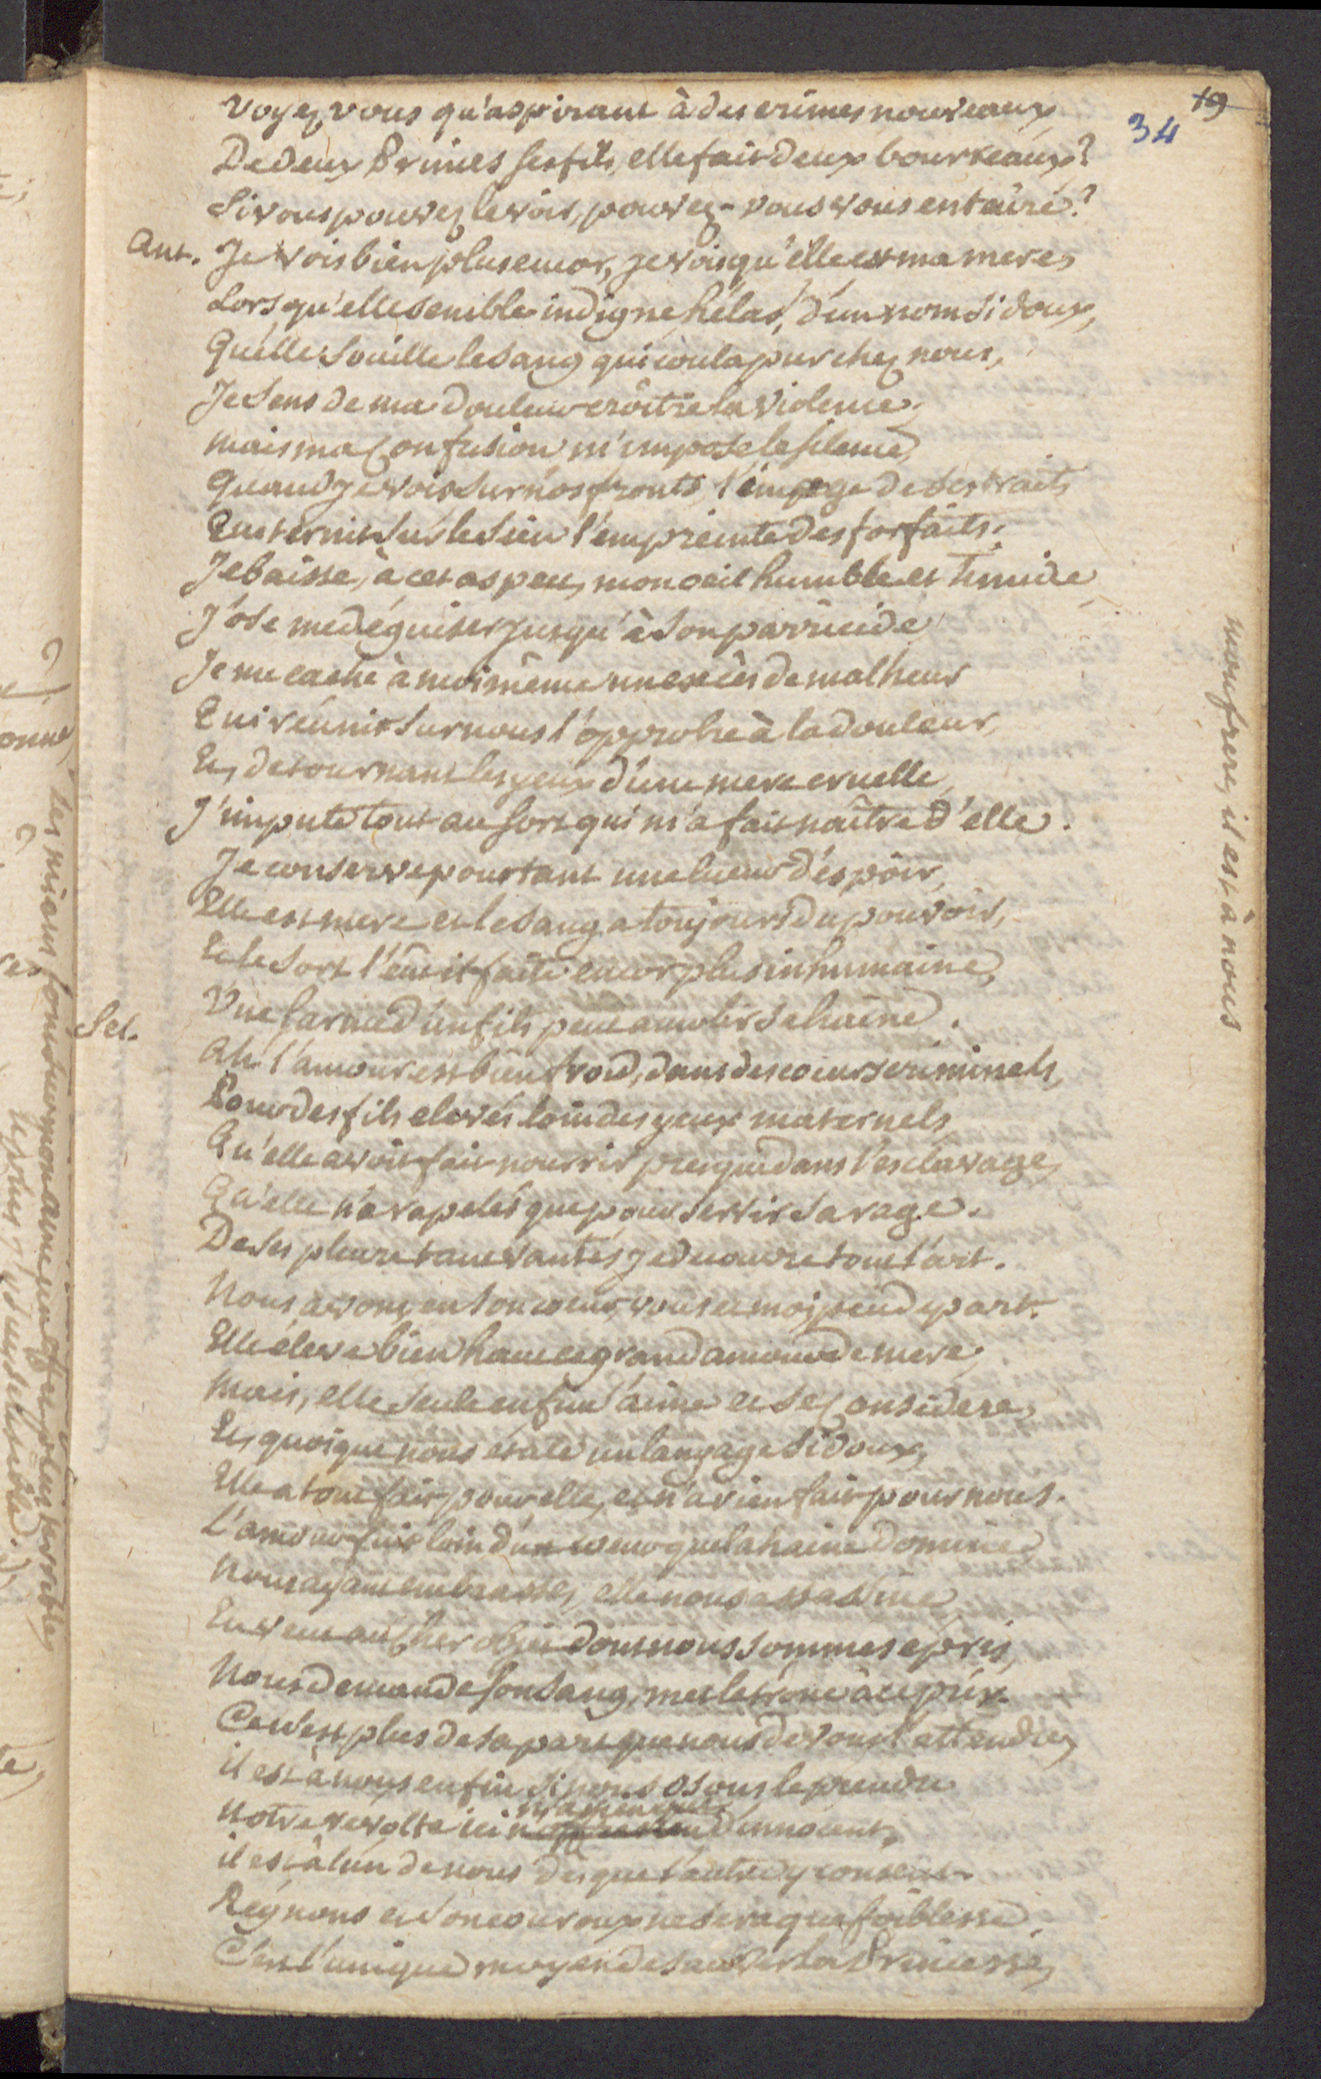 19
34
Voyez vous qu'aspirant à des crimes nouveaux
De deux Princes ses fils, elle fait deux bourreaux?
Si vous pouvez le voir, pouvez-vous vous en taire?
Ant. Je vois bien plus encor, je vois qu'elle est ma mere,
Lors qu'elle semble indigne hélas, d'un nom si doux,
Qu'elle souille le sang qui coula pur chez nous,
Je sens de ma douleur croître la violence,
mais ma confusion m'impose le silence,
Quand je vois sur nos fronts, l'image de ses traits
Que ternit sur le sien l'empreinte des forfaits.
Je baisse, à cet aspect, mon oeil humble et timide
J'ose me déguiser jusqu'à son parricide
Je me cache à moi même un excès de malheur
Qui réunit sur nous l'opprobre à la douleur,
Et, detournant les yeux d'une mere cruelle,
J'impute tout au sort qui m'a fait naître d'elle.
Je conserve pourtant une lueur d'espoir,
Elle est mere et le sang a toujours du pouvoir,
Et le sort l'eut-il faite encor plus inhumaine,
Une larme d'un fils peut amolir sa haine.
Sel. Ah! l'amour est bien froid, dans des coeurs criminels,
Pour des fils elevés loin des yeux maternels
Qu'elle avoit fait nourrir presque dans l'esclavage,
Qu'elle n'a rapelés que pour servir sa rage.
De ses pleurs tant vantés je decouvre tout l'art.
Nous avons, en son coeur, vous et moi peu de part.
Elle éleve bien haut ce grand amour de mere,
Mais, elle seule enfin s'aime et se considere,
Et, quoique nous etale un langage si doux,
Elle a tout fait pour elle, et n'a rien fait pour nous.
L'amour fuit loin d'un coeur que la haine domine
Nous ayant embrassés, elle nous assassine,
En veut au cher objet dont nous sommes épris,
Nous demande son sang, met le trône à ce prix.
Ce n'est plus de sa part que nous devons l'attendre,
il est à nous enfin si nous osons le prendre
Notre revolte ici n'a rien que d'innocent,
il est à l'un de nous des que l'autre y consent.
Régnons et son couroux ne sera que foiblesse
C'est l'unique moyen de sauver la Princesse,
mon frere, il est à nous